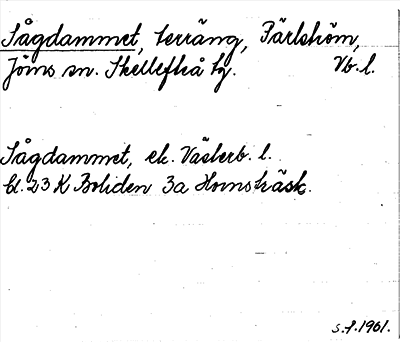 Sågdammet, terräng, Pärlström,
Jörns sn. Skellefteå tg. Vb. l.
Sågdammet, ek. Västerb. l.
bl. 23 K Boliden 3a Hornsträsk.
s. f. 1961.